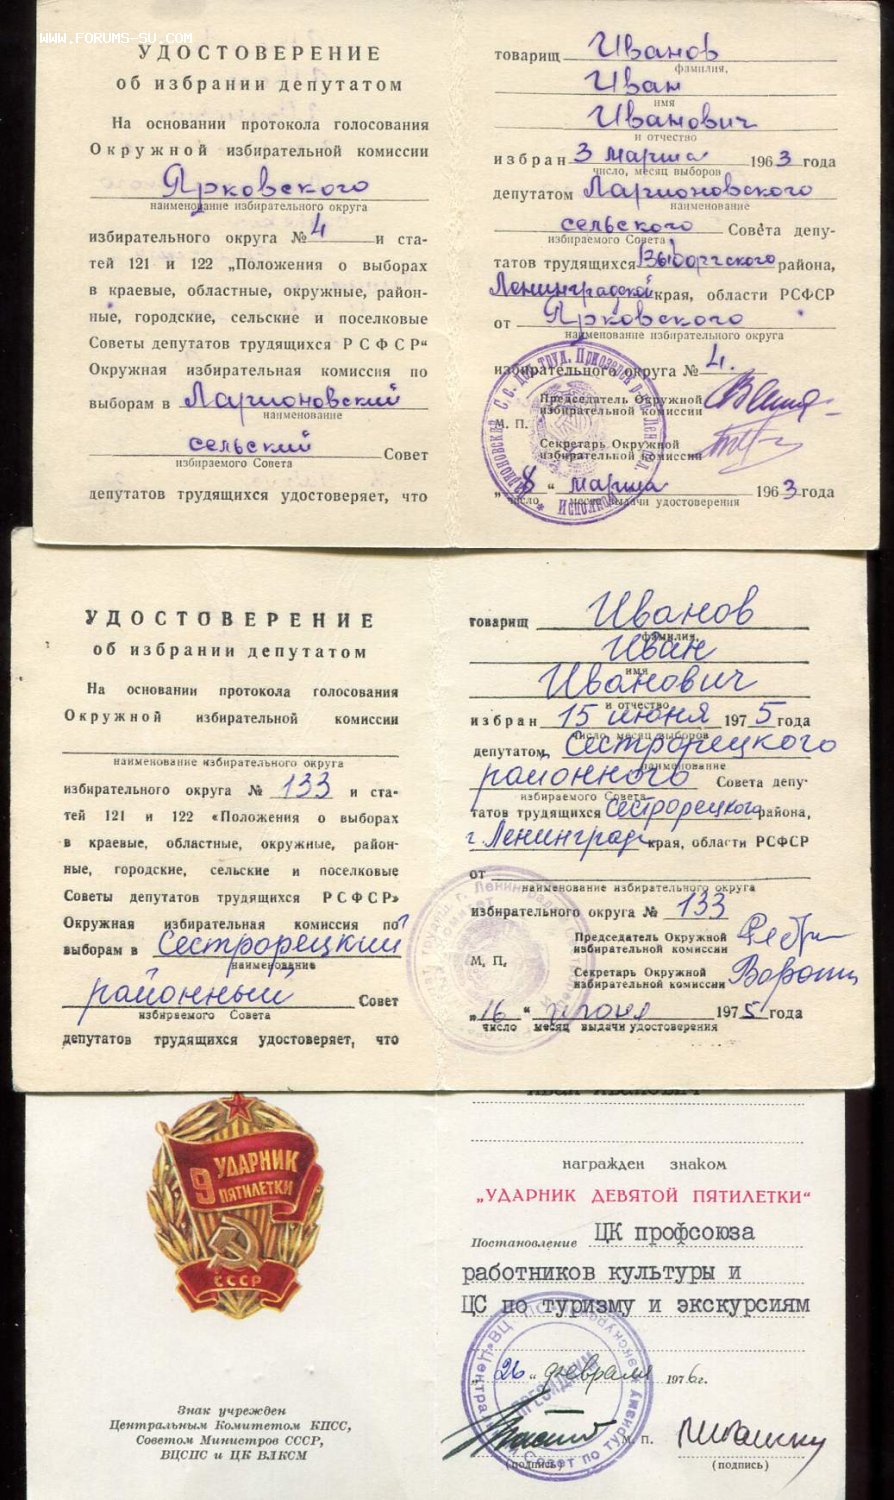 WWW.FORUMS-SU.COM
УДОСТОВЕРЕНИЕ
об избрании депутатом
На основании протокола голосования
Окружной избирательной комиссии
Ярковского
наименование избирательного округа
избирательного округа № 4 и ста-
тей 121 и 122 „Положения о выборах
в краевые, областные, окружные, район-
ные, городские, сельские и поселковые
Советы депутатов трудящихся РСФСР“
Окружная избирательная комиссия по
выборам в Ларионовский
наименование
сельский Совет
избираемого Совета
депутатов трудящихся удостоверяет, что
товарищ Иванов
фамилия,
Иван
имя
Иванович
и отчество
избран 3 марта 1963 года
число, месяц выборов
депутатом Ларионовского
наименование
сельского Совета депу-
избираемого Совета
татов трудящихся Выборгского района,
Ленинградской края, области РСФСР
от Ярковского
наименование избирательного округа
избирательного округа № 4.
Председатель Окружной
избирательной комиссии
М. П.
Секретарь Окружной
избирательной комиссии
„8“ марта 1963 года
число месяц выдачи удостоверения
УДОСТОВЕРЕНИЕ
об избрании депутатом
На основании протокола голосования
Окружной избирательной комиссии
наименование избирательного округа
избирательного округа № 133 и ста-
тей 121 и 122 «Положения о выборах
в краевые, областные, окружные, район-
ные, городские, сельские и поселковые
Советы депутатов трудящихся РСФСР»
Окружная избирательная комиссия по
выборам в Сестрорецкий
наименование
районный Совет
избираемого Совета
депутатов трудящихся удостоверяет, что
товарищ Иванов
фамилия,
Иван
имя
Иванович
и отчество
избран 15 июня 1975 года
число, месяц выборов
депутатом Сестрорецкого
наименование
районного Совета депу-
избираемого Совета
татов трудящихся Сестрорецкого района,
г. Ленинград края, области РСФСР
от
наименование избирательного округа
избирательного округа № 133
Председатель Окружной
избирательной комиссии
М. П.
Секретарь Окружной
избирательной комиссии
„16“ июня 1975 года
число месяц выдачи удостоверения
9 УДАРНИК
ПЯТИЛЕТКИ
СССР
Знак учрежден
Центральным Комитетом КПСС,
Советом Министров СССР,
ВЦСПС и ЦК ВЛКСМ
Иван Иванович
награжден знаком
„УДАРНИК ДЕВЯТОЙ ПЯТИЛЕТКИ“
Постановление ЦК профсоюза
работников культуры и
ЦС по туризму и экскурсиям
„26“ февраля 1976 г.
М. П.
(подпись) (подпись)